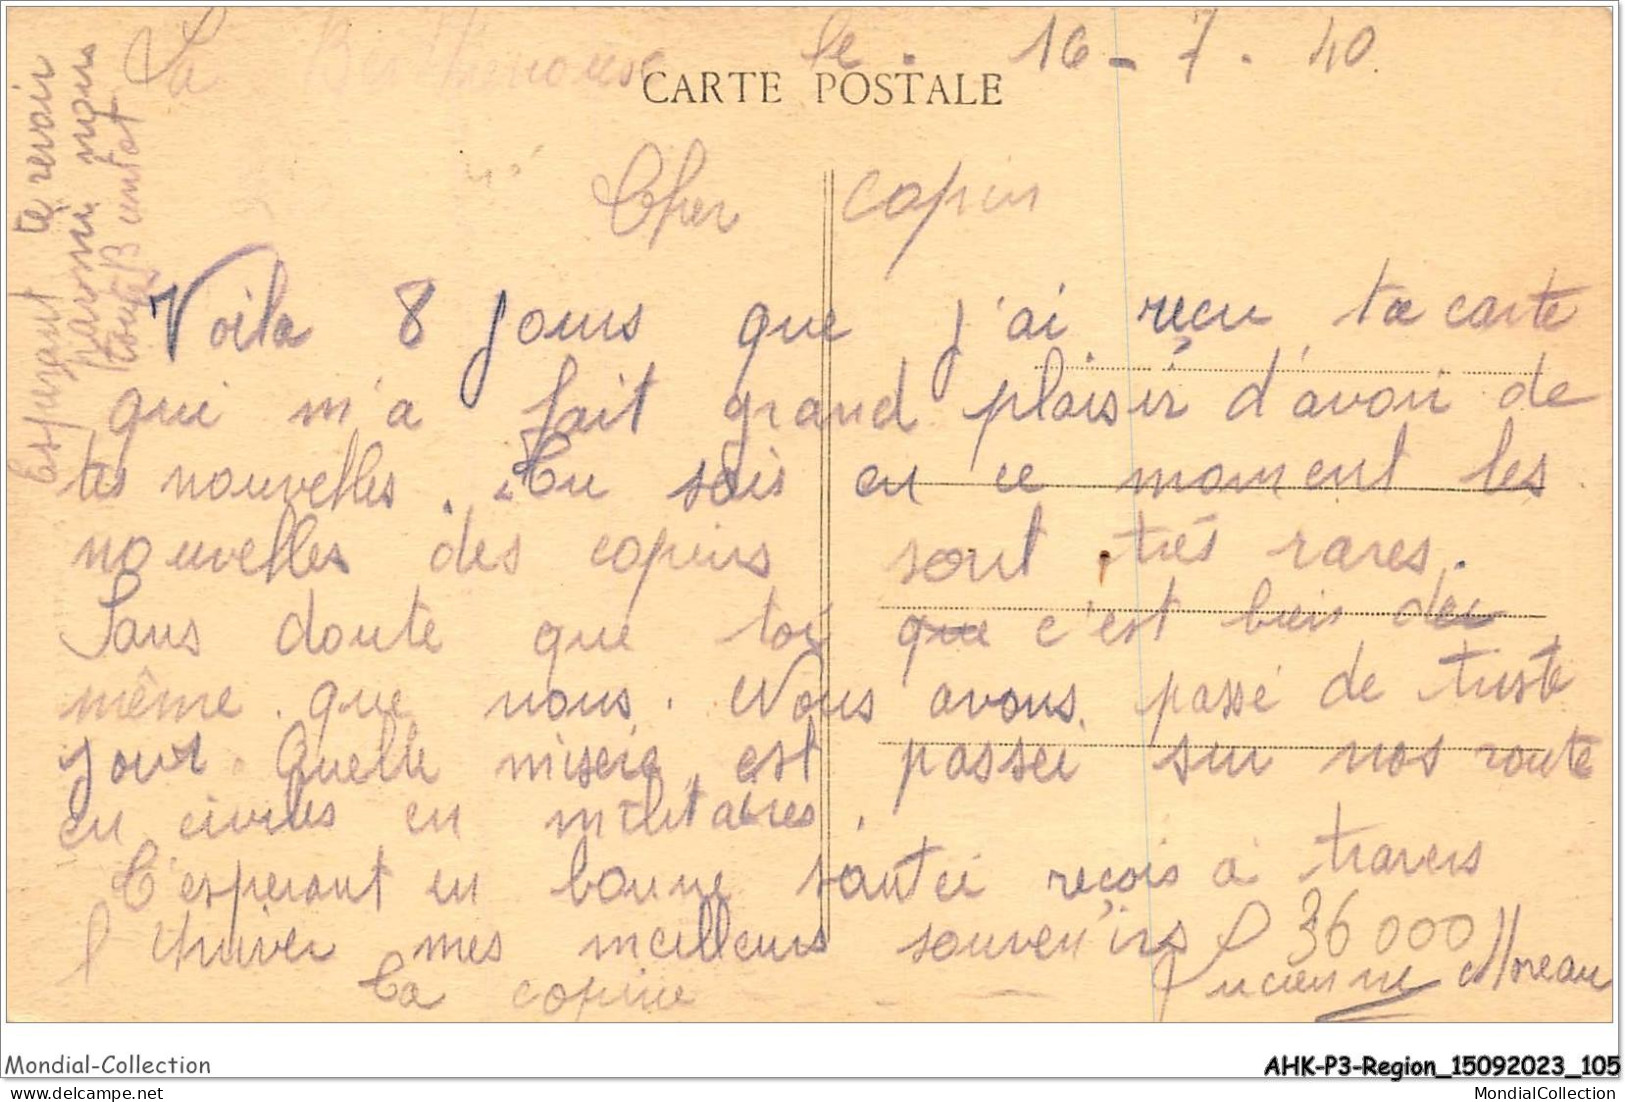 La Berthenoux le. 16-7.40
CARTE POSTALE
Cher copin
Voila 8 jours que j'ai reçu ta carte
qui m'a fait grand plaisir d'avoir de
tes nouvelles. Tu sais en ce moment les
nouvelles des copins sont très rares.
Sans doute que toi que c'est bien de
même que nous. Nous avons passé de triste
jour Quelle misere est passei sur nos route
en civiles en militaires.
T'esperant en bonne santei reçois à travers
l'hiver mes meilleurs souvenirs
36000
Ta copine Lucienne Moreau
Esperant te revoir
parmi nous
tout bientot
Mondial-Collection
AHK-P3-Region_15092023_105
MondialCollection